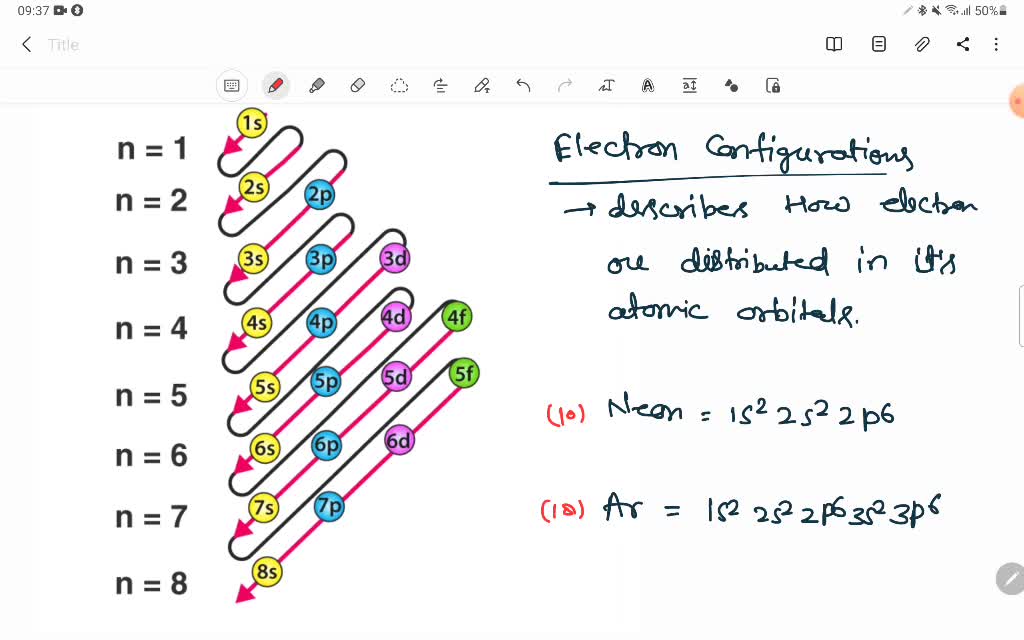 09:37 50%
Title
1s
n = 1
2s 2p
n = 2
3s 3p 3d
n = 3
4s 4p 4d 4f
n = 4
5s 5p 5d 5f
n = 5
6s 6p 6d
n = 6
7s 7p
n = 7
8s
n = 8
Electron Configurations
→ describes How electron
are distributed in it's
atomic orbitals.
(10) Neon = 1s² 2s² 2p6
(18) Ar = 1s² 2s² 2p6 3s² 3p6